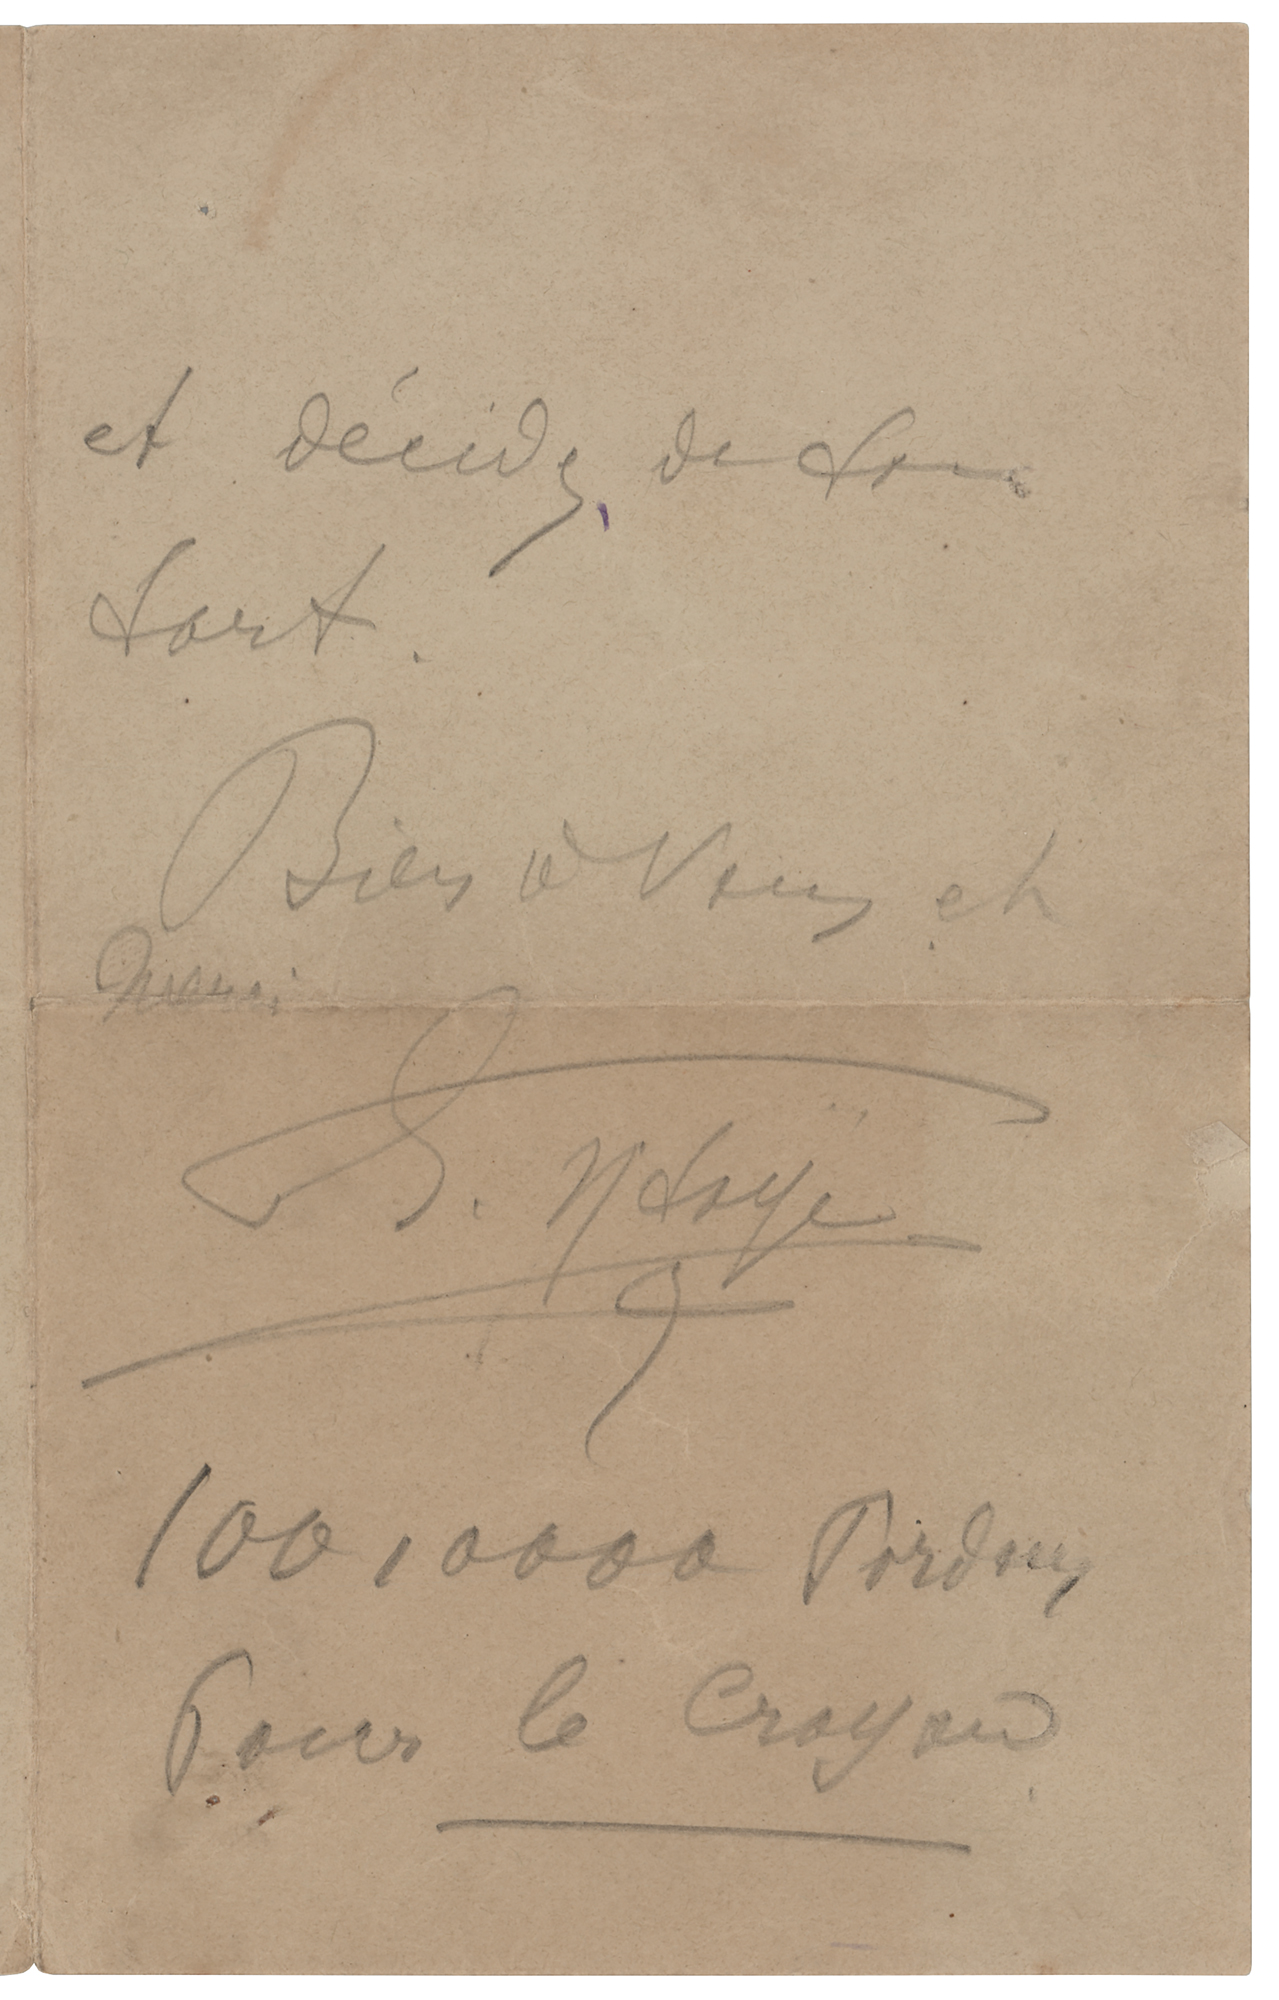 et décidez de son
sort.
Bien à Vous et
merci
100,0000 Pardons
Pour le Crayon